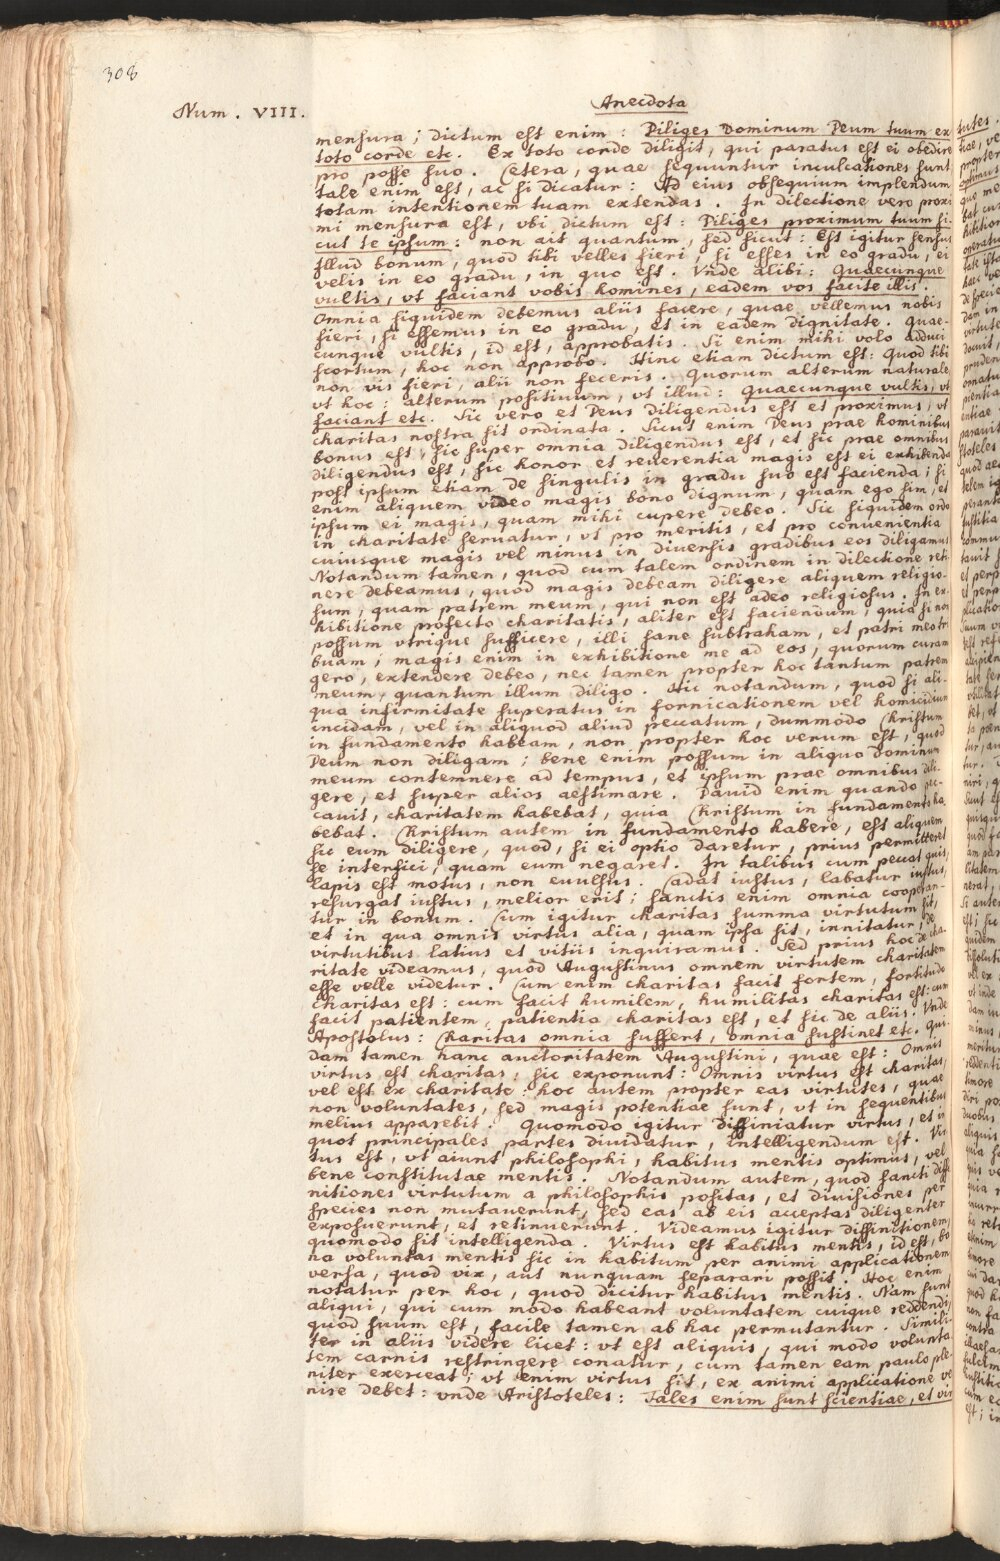 308
Num. VIII.
Anecdota
mensura; dictum est enim: Diliges Dominum Deum tuum ex
toto corde etc. Ex toto corde diligit, qui paratus est ei obedire
pro posse suo. Cetera, quae sequuntur inculcationes sunt
tale enim est, ac si dicatur: Ad eius obsequium implendum
totam intentionem tuam extendas. In dilectione vero proxi
mi mensura est, vbi dictum est: Diliges proximum tuum si,
cut te ipsum: non ait quantum, sed sicut: Est igitur sensus
Illud bonum, quod tibi velles fieri, si esses in eo gradu, ei
velis in eo gradu, in quo est. Vnde alibi: Quaecunque
vultis, vt faciant vobis homines, eadem vos facite illis.
Omnia siquidem debemus aliis facere, quae vellemus nobis
fieri, si essemus in eo gradu, et in eadem dignitate. Quae-
cunque vultis, id est, approbatis. Si enim mihi volo adduci
scortum, hoc non approbo. Hinc etiam dictum est: Quod tibi
non vis fieri, alii non feceris. Quorum alterum naturale,
vt hoc: alterum positiuum, vt illud: Quaecunque vultis, vt
faciant etc. Sic vero et Deus diligendus est et proximus, vt
charitas nostra sit ordinata. Sicut enim Deus prae hominibus
bonus est, sic super omnia diligendus est, et sic prae omnibus
diligendus est, sic honor et reuerentia magis est ei exhibenda
post ipsum etiam de singulis in gradu suo est facienda; si
enim aliquem video magis bono dignum, quam ego sim, et
ipsum ei magis, quam mihi cupere debeo. Sic siquidem ordo
in charitate seruatur, vt pro meritis, et pro conuenientia
cuiusque magis vel minus in diuersis gradibus eos diligamus
Notandum tamen, quod cum talem ordinem in dilectione reti
nere debeamus, quod magis debeam diligere aliquem religio-
sum, quam patrem meum, qui non est adeo religiosus. In ex-
hibitione profecto charitatis, aliter est faciendum, quia si non
possum vtrique sufficere, illi sane subtraham, et patri meo tri
buam; magis enim in exhibitione me ad eos, quorum curam
gero, extendere debeo, nec tamen propter hoc tantum patrem
meum, quantum illum diligo. Hic notandum, quod si ali-
qua infirmitate superatus in fornicationem vel homicidium
incidam, vel in aliquod aliud peccatum, dummodo Christum
in fundamento habeam, non propter hoc verum est, quod
Deum non diligam; bene enim possum in aliquo Dominum
meum contemnere ad tempus, et ipsum prae omnibus dili-
gere, et super alios aestimare. Dauid enim quando pec-
cauit, charitatem habebat, quia Christum in fundamento ha
bebat. Christum autem in fundamento habere, est aliquem
sic eum diligere, quod, si ei optio daretur, prius permitteret
se interfici, quam eum negaret. In talibus cum peccat quis,
lapis est motus, non euulsus. Cadat iustus, labatur iustus,
resurgat iustus, melior erit; sanctis enim omnia cooperan-
tur in bonum. Cum igitur charitas summa virtutum sit,
et in qua omnis virtus alia, quam ipsa sit, innitatur; de
virtutibus latius et vitiis inquiramus. Sed prius hoc de cha-
ritate videamus, quod Augustinus omnem virtutem charitatem
esse velle videtur. Cum enim charitas facit fortem, fortitudo
charitas est: cum facit humilem, humilitas charitas est: cum
facit patientem, patientia charitas est, et sic de aliis. Vnde
Apostolus: Charitas omnia suffert, omnia sustinet etc. Qui-
dam tamen hanc auctoritatem Augustini, quae est: Omnis
virtus est charitas, sic exponunt: Omnis virtus est charitas,
vel est ex charitate: hoc autem propter eas virtutes, quae
non voluntates, sed magis potentiae sunt, vt in sequentibus
melius apparebit. Quomodo igitur diffiniatur virtus, et in
quot principales partes diuidatur, intelligendum est. Vir
tus est, vt aiunt philosophi, habitus mentis optimus, vel
bene constitutae mentis. Notandum autem, quod sancti diffi
nitiones virtutum a philosophis positas, et diuisiones per
species non mutauerunt, sed eas ab eis acceptas diligenter
exposuerunt, et retinuerunt. Videamus igitur diffinitionem,
quomodo sit intelligenda. Virtus est habitus mentis, id est, bo
na voluntas mentis sic in habitum per animi applicationem
versa, quod vix, aut nunquam separari possit. Hoc enim
notatur per hoc, quod dicitur habitus mentis. Nam sunt
aliqui, qui cum modo habeant voluntatem cuique reddendi,
quod suum est, facile tamen ab hac permutantur. Simili-
ter in aliis videre licet: vt est aliquis, qui modo volunta
tem carnis restringere conatur, cum tamen eam paulo ple-
niter exerceat; vt enim virtus sit, ex animi applicatione ve
nire debet: vnde Aristoteles: Tales enim sunt scientiae, et vir